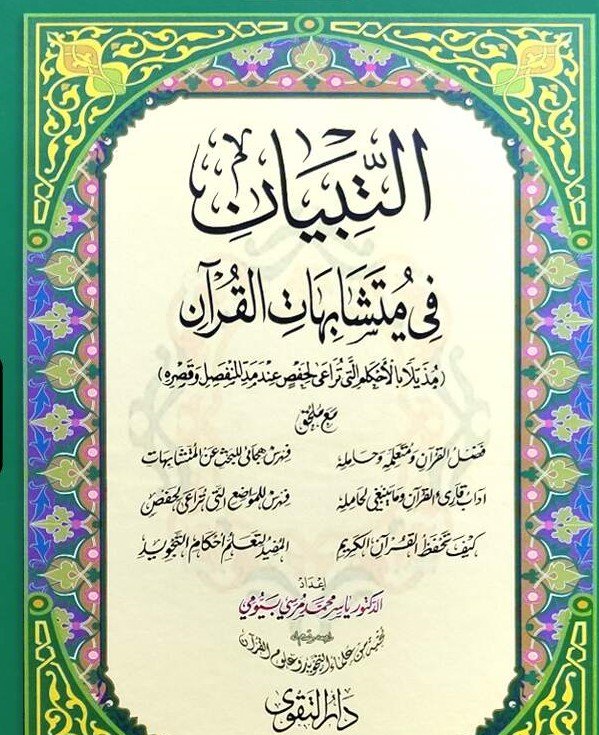 التِّبيَان
فِي مُتَشَابِهَاتِ القُرآن
(مُذَيَّلًا بالأحكام التي تُراعى لحفص عند مد المنفصل وقصره)
مع ملحق
فضل القرآن ومُتعلِّمه وحامله فهرس هجائي للبحث عن المتشابهات
آداب قارئ القرآن وما ينبغي لحامله فهرس للمواضع التي تراعى لحفص
كيف تحفظ القرآن الكريم المفيد لتعلم أحكام التجويد
إعداد
الدكتور ياسر محمد مرسي بيومي
نخبة من علماء التجويد وعلوم القرآن
دار التقوى